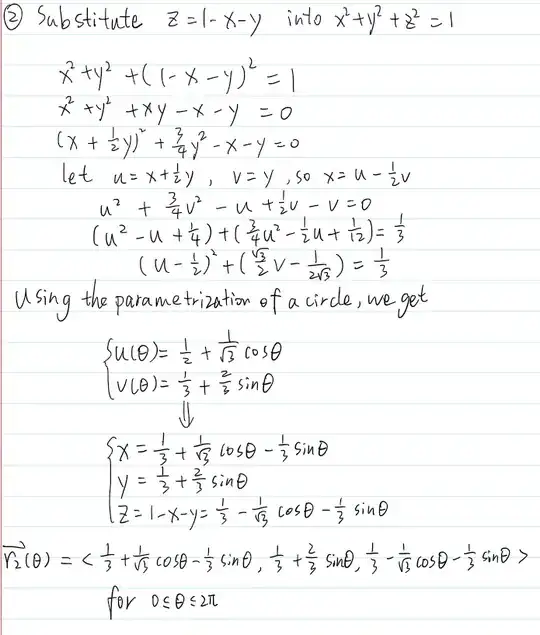 ② Substitute z=1-x-y into x²+y²+z²=1
x²+y²+(1-x-y)²=1
x²+y²+xy-x-y=0
(x+½y)²+¾y²-x-y=0
let u=x+½y, v=y, so x=u-½v
u²+¾v²-u+½v-v=0
(u²-u+¼)+(¾u²-½u+1/12)=⅓
(u-½)²+(√3/2 v-1/(2√3))=⅓
Using the parametrization of a circle, we get
{u(θ)=½+1/√3 cosθ
v(θ)=⅓+⅔ sinθ
⇓
{x=⅓+1/√3 cosθ-⅓ sinθ
y=⅓+⅔ sinθ
z=1-x-y=⅓-1/√3 cosθ-⅓ sinθ
r⃗₂(θ)=<⅓+1/√3 cosθ-⅓ sinθ, ⅓+⅔ sinθ, ⅓-1/√3 cosθ-⅓ sinθ>
for 0≤θ≤2π